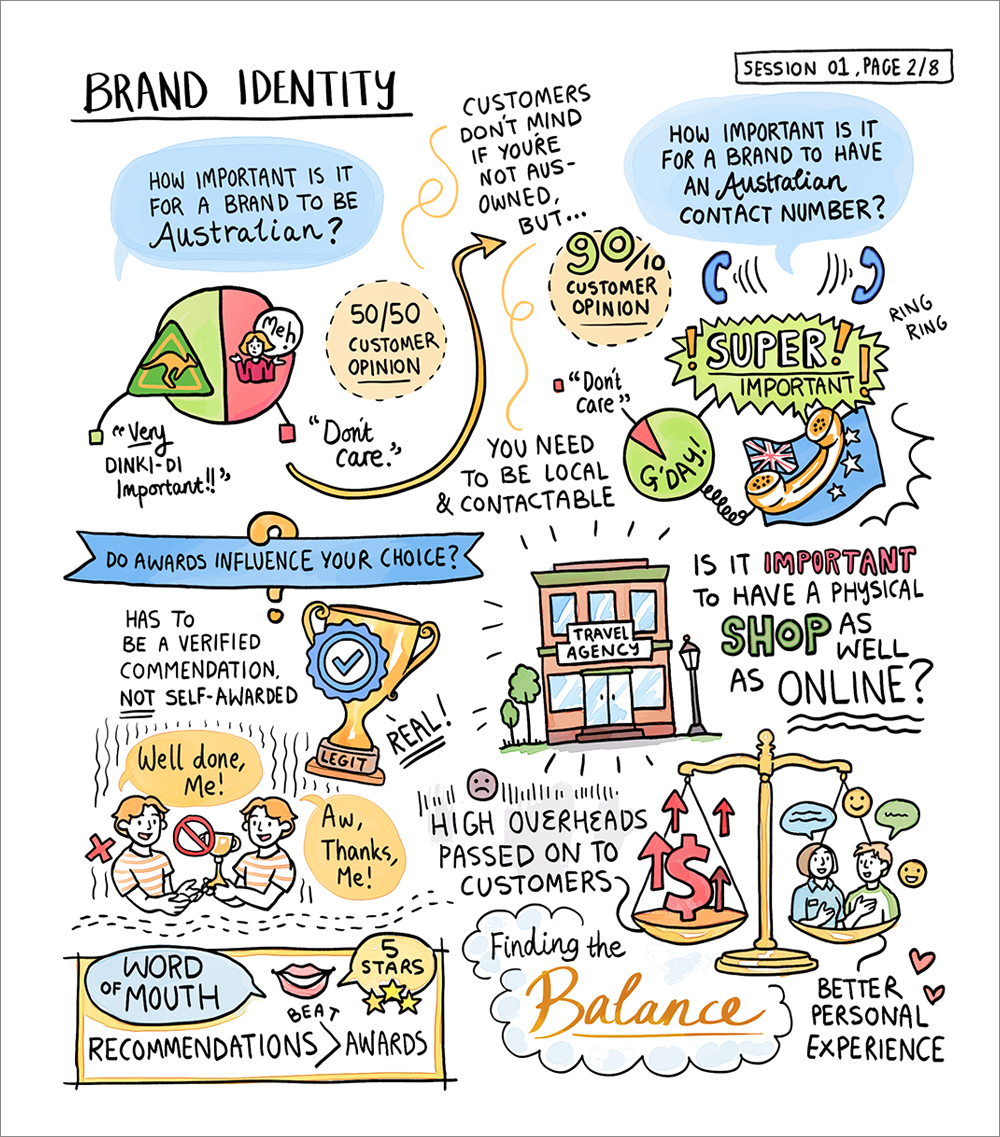 BRAND IDENTITY
SESSION 01, PAGE 2/8
HOW IMPORTANT IS IT
FOR A BRAND TO BE
Australian?
Meh
"Very
DINKI-DI
Important!!"
"Don't
Care."
50/50
CUSTOMER
OPINION
CUSTOMERS
DON'T MIND
IF YOU'RE
NOT AUS-
OWNED,
BUT...
90/10
CUSTOMER
OPINION
HOW IMPORTANT IS IT
FOR A BRAND TO HAVE
AN Australian
CONTACT NUMBER?
RING
RING
SUPER!
IMPORTANT!
"Don't
care"
G'DAY!
YOU NEED
TO BE LOCAL
& CONTACTABLE
DO AWARDS INFLUENCE YOUR CHOICE?
?
HAS TO
BE A VERIFIED
COMMENDATION,
NOT SELF-AWARDED
LEGIT
REAL!
Well done,
Me!
Aw,
Thanks,
Me!
WORD
OF MOUTH
5
STARS
BEAT
RECOMMENDATIONS > AWARDS
TRAVEL
AGENCY
IS IT IMPORTANT
TO HAVE A PHYSICAL
SHOP AS
WELL
AS ONLINE?
HIGH OVERHEADS
PASSED ON TO
CUSTOMERS
$
Finding the
Balance
BETTER
PERSONAL
EXPERIENCE